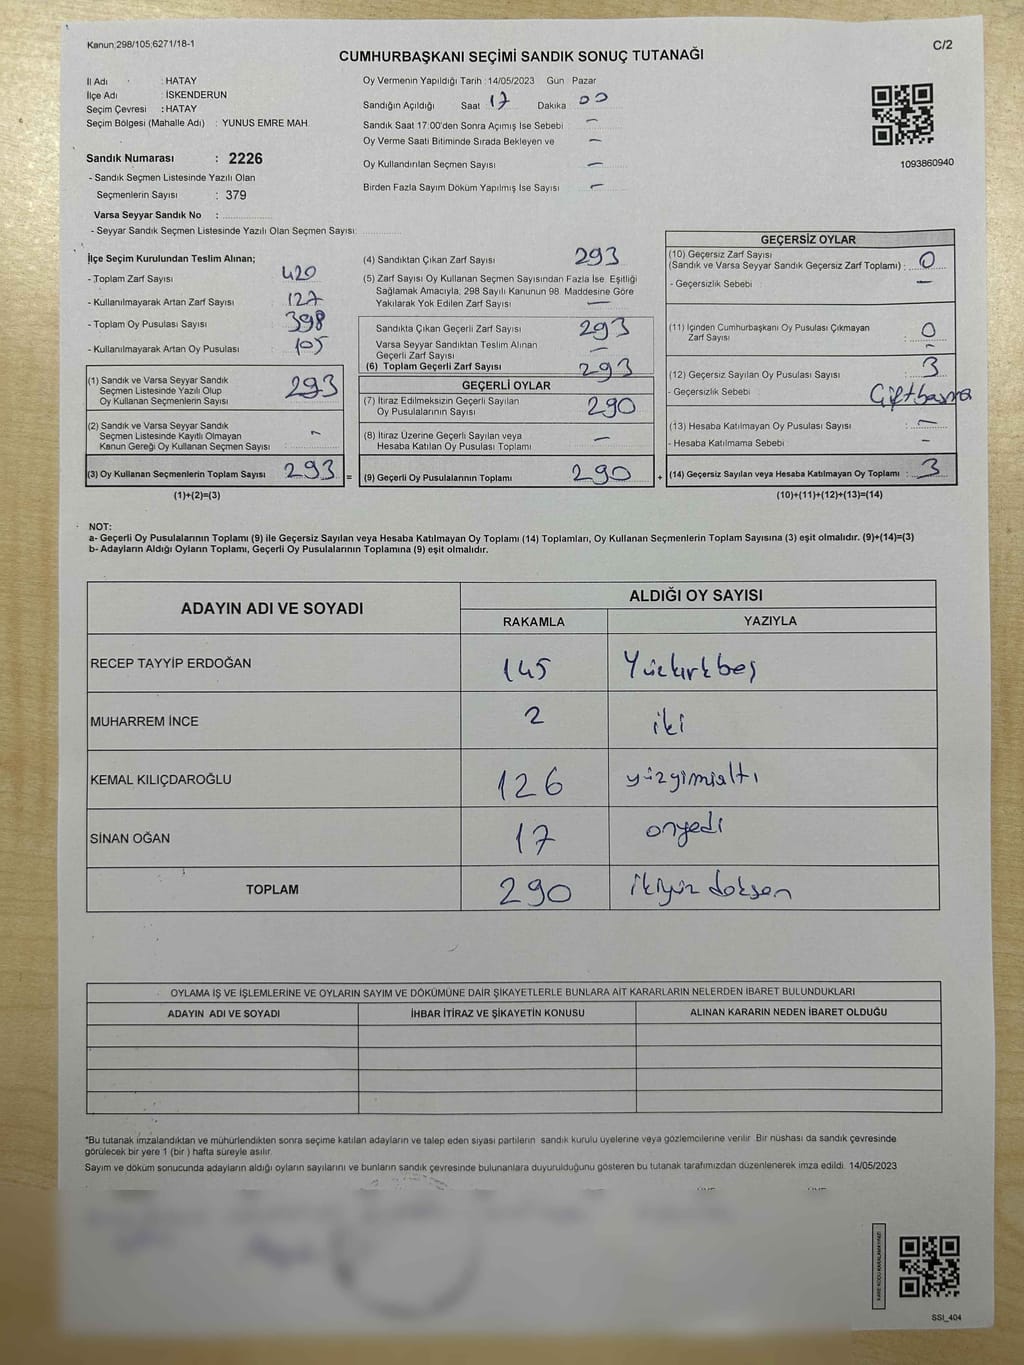 Kanun;298/105;6271/18-1
C/2
CUMHURBAŞKANI SEÇİMİ SANDIK SONUÇ TUTANAĞI
İl Adı : HATAY
İlçe Adı : İSKENDERUN
Seçim Çevresi : HATAY
Seçim Bölgesi (Mahalle Adı) : YUNUS EMRE MAH.
Sandık Numarası : 2226
- Sandık Seçmen Listesinde Yazılı Olan
Seçmenlerin Sayısı : 379
Varsa Seyyar Sandık No :
- Seyyar Sandık Seçmen Listesinde Yazılı Olan Seçmen Sayısı:
Oy Vermenin Yapıldığı Tarih : 14/05/2023 Gün : Pazar
Sandığın Açıldığı Saat : 17 Dakika : 00
Sandık Saat 17:00'den Sonra Açımış İse Sebebi : –
Oy Verme Saati Bitiminde Sırada Bekleyen ve –
Oy Kullandırılan Seçmen Sayısı –
Birden Fazla Sayım Döküm Yapılmış İse Sayısı : –
1093860940
İlçe Seçim Kurulundan Teslim Alınan;
- Toplam Zarf Sayısı : 420
- Kullanılmayarak Artan Zarf Sayısı : 127
- Toplam Oy Pusulası Sayısı : 398
- Kullanılmayarak Artan Oy Pusulası : 105
(1) Sandık ve Varsa Seyyar Sandık
Seçmen Listesinde Yazılı Olup 293
Oy Kullanan Seçmenlerin Sayısı
(2) Sandık ve Varsa Seyyar Sandık
Seçmen Listesinde Kayıtlı Olmayan –
Kanun Gereği Oy Kullanan Seçmen Sayısı :
(3) Oy Kullanan Seçmenlerin Toplam Sayısı : 293 =
(1)+(2)=(3)
(4) Sandıktan Çıkan Zarf Sayısı : 293
(5) Zarf Sayısı Oy Kullanan Seçmen Sayısından Fazla İse, Eşitliği
Sağlamak Amacıyla, 298 Sayılı Kanunun 98. Maddesine Göre
Yakılarak Yok Edilen Zarf Sayısı : –
Sandıkta Çıkan Geçerli Zarf Sayısı : 293
Varsa Seyyar Sandıktan Teslim Alınan
Geçerli Zarf Sayısı : –
(6) Toplam Geçerli Zarf Sayısı : 293
GEÇERLİ OYLAR
(7) İtiraz Edilmeksizin Geçerli Sayılan
Oy Pusulalarının Sayısı : 290
(8) İtiraz Üzerine Geçerli Sayılan veya
Hesaba Katılan Oy Pusulası Toplamı : –
(9) Geçerli Oy Pusulalarının Toplamı : 290 +
GEÇERSİZ OYLAR
(10) Geçersiz Zarf Sayısı
(Sandık ve Varsa Seyyar Sandık Geçersiz Zarf Toplamı) : 0
- Geçersizlik Sebebi : –
(11) İçinden Cumhurbaşkanı Oy Pusulası Çıkmayan
Zarf Sayısı : 0
–
(12) Geçersiz Sayılan Oy Pusulası Sayısı : 3
- Geçersizlik Sebebi : Çiftbasma
(13) Hesaba Katılmayan Oy Pusulası Sayısı : –
- Hesaba Katılmama Sebebi : –
(14) Geçersiz Sayılan veya Hesaba Katılmayan Oy Toplamı : 3
(10)+(11)+(12)+(13)=(14)
NOT:
a- Geçerli Oy Pusulalarının Toplamı (9) ile Geçersiz Sayılan veya Hesaba Katılmayan Oy Toplamı (14) Toplamları, Oy Kullanan Seçmenlerin Toplam Sayısına (3) eşit olmalıdır. (9)+(14)=(3)
b- Adayların Aldığı Oyların Toplamı, Geçerli Oy Pusulalarının Toplamına (9) eşit olmalıdır.
ADAYIN ADI VE SOYADI
ALDIĞI OY SAYISI
RAKAMLA YAZIYLA
RECEP TAYYİP ERDOĞAN 145 Yüzkırkbeş
MUHARREM İNCE 2 iki
KEMAL KILIÇDAROĞLU 126 yüzyimialtı
SİNAN OĞAN 17 onyedi
TOPLAM 290 ikiyüz doksan
OYLAMA İŞ VE İŞLEMLERİNE VE OYLARIN SAYIM VE DÖKÜMÜNE DAİR ŞİKAYETLERLE BUNLARA AİT KARARLARIN NELERDEN İBARET BULUNDUKLARI
ADAYIN ADI VE SOYADI İHBAR İTİRAZ VE ŞİKAYETİN KONUSU ALINAN KARARIN NEDEN İBARET OLDUĞU
*Bu tutanak imzalandıktan ve mühürlendikten sonra seçime katılan adayların ve talep eden siyasi partilerin sandık kurulu üyelerine veya gözlemcilerine verilir. Bir nüshası da sandık çevresinde
görülecek bir yere 1 (bir ) hafta süreyle asılır.
Sayım ve döküm sonucunda adayların aldığı oyların sayılarını ve bunların sandık çevresinde bulunanlara duyurulduğunu gösteren bu tutanak tarafımızdan düzenlenerek imza edildi. 14/05/2023
SSI_404